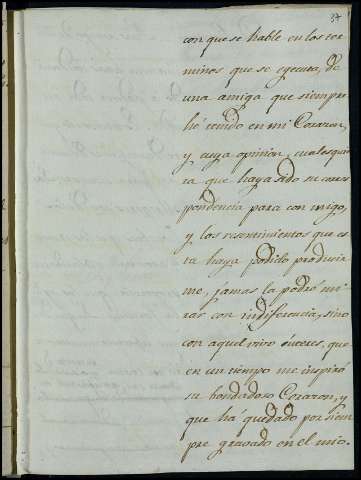 37
con que se hable en los ter
minos que se egecuta, de
una amiga que siempre
hé tenido en mi Corazon,
y cuya opinion, cualesquie
ra que haya sido su corres
pondencia para con migo,
y los resentimientos que es
ta haya podido producir
me, jamas la podré mi
rar con indiferencia, sino
con aquel vivo interes, que
en un tiempo me inspiró
su bondadoso Corazon, y
que há quedado por siem
pre gravado en el mio.